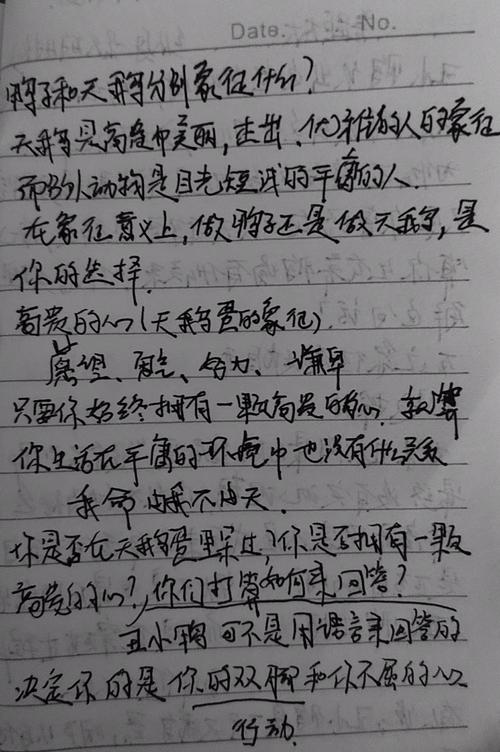 Date. No.
鸭子和天鹅分别象征什么?
天鹅是高贵中美丽,杰出、优雅的人的象征
而别人动物是目光短浅的平庸的人.
在象征意义上,做鸭子还是做天鹅,是
你的选择.
高贵的心(天鹅蛋的象征).
、努力、谦卑
只要你始终拥有一颗高贵的心.就算
你生活在平庸的环境中也没有什么关系
我命由我不由天.
你是否在天鹅蛋里呆过?你是否拥有一颗
高贵的心?你们打算如何来回答?
丑小鸭可不是用语言来回答的
决定你的是你的双脚和你不屈的心
行动.